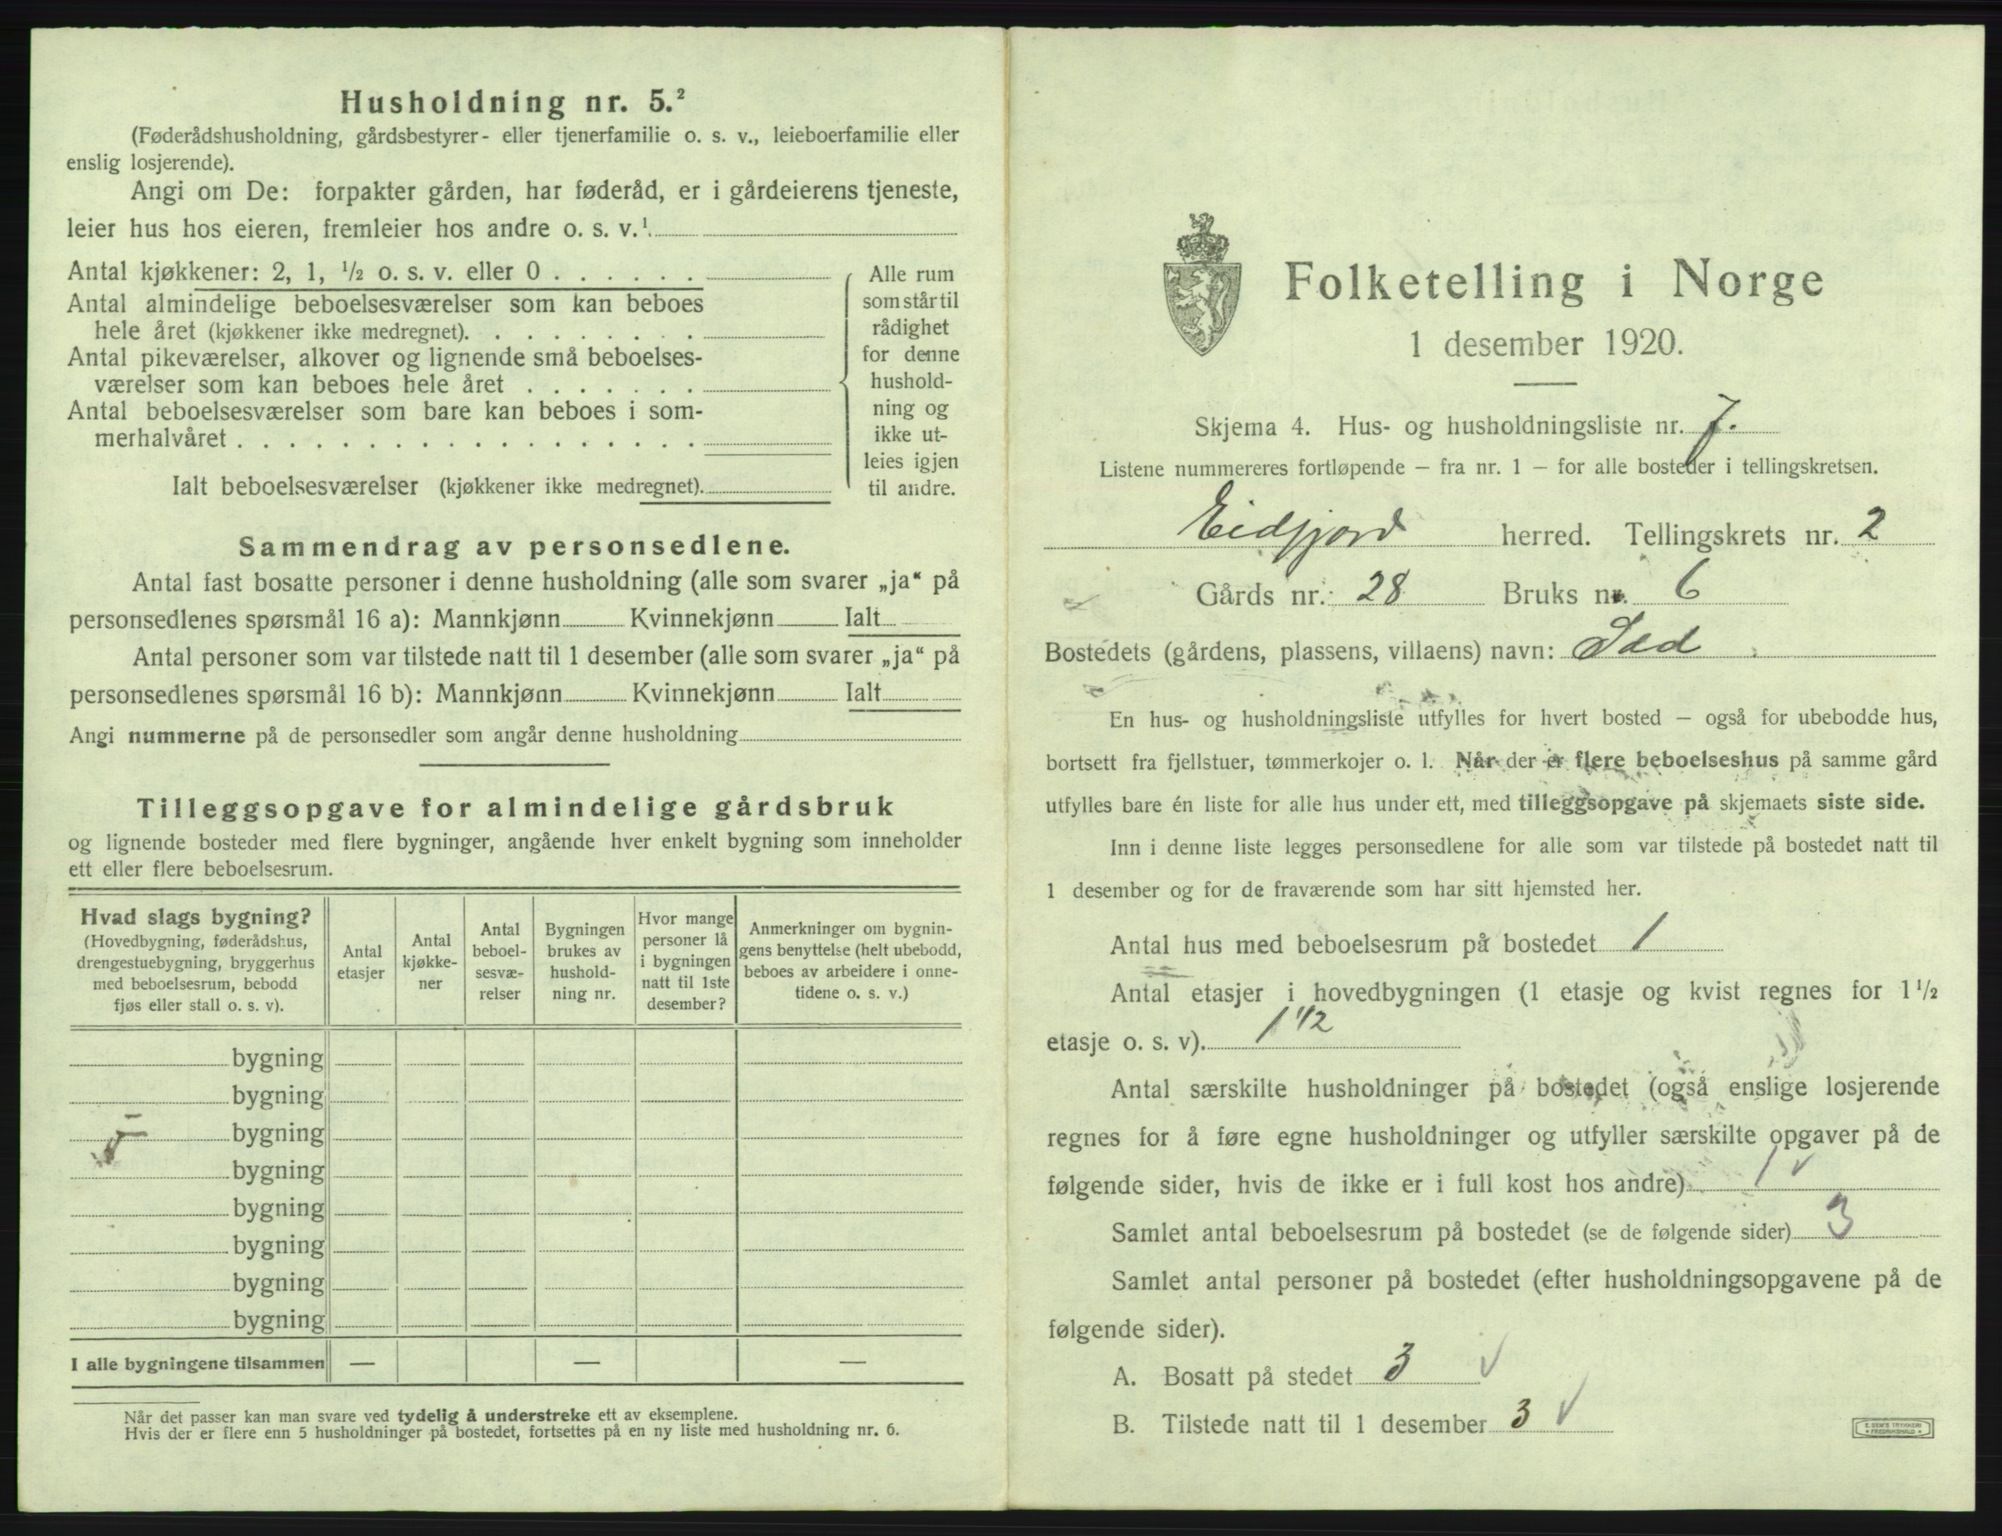 Husholdning nr. 5.²
(Føderådshusholdning, gårdsbestyrer- eller tjenerfamilie o. s. v., leieboerfamilie eller
enslig losjerende).
Angi om De: forpakter gården, har føderåd, er i gårdeierens tjeneste,
leier hus hos eieren, fremleier hos andre o. s. v.¹
Antal kjøkkener: 2, 1, ½ o. s. v. eller 0 . . . . . .
Antal almindelige beboelsesværelser som kan beboes
hele året (kjøkkener ikke medregnet). . . . . . . . .
Antal pikeværelser, alkover og lignende små beboelses-
værelser som kan beboes hele året . . . . . . .
Antal beboelsesværelser som bare kan beboes i som-
merhalvåret . . . . . . . . . . . . . . . . . .
Ialt beboelsesværelser (kjøkkener ikke medregnet).
Alle rum
som står til
rådighet
for denne
hushold-
ning og
ikke ut-
leies igjen
til andre.
Sammendrag av personsedlene.
Antal fast bosatte personer i denne husholdning (alle som svarer „ja“ på
personsedlenes spørsmål 16 a): Mannkjønn Kvinnekjønn Ialt
Antal personer som var tilstede natt til 1 desember (alle som svarer „ja“ på
personsedlenes spørsmål 16 b): Mannkjønn Kvinnekjønn Ialt
Angi nummerne på de personsedler som angår denne husholdning
Tilleggsopgave for almindelige gårdsbruk
og lignende bosteder med flere bygninger, angående hver enkelt bygning som inneholder
ett eller flere beboelsesrum.
Hvad slags bygning?
(Hovedbygning, føderådshus,
drengestuebygning, bryggerhus
med beboelsesrum, bebodd
fjøs eller stall o. s. v).
Antal
etasjer
Antal
kjøkke-
ner
Antal
beboel-
sesvæ-
relser
Bygningen
brukes av
hushold-
ning nr.
Hvor mange
personer lå
i bygningen
natt til 1ste
desember?
Anmerkninger om bygnin-
gens benyttelse (helt ubebodd,
beboes av arbeidere i onne-
tidene o. s. v.)
bygning
bygning
bygning
bygning
bygning
bygning
bygning
bygning
I alle bygningene tilsammen — — —
Når det passer kan man svare ved tydelig å understreke ett av eksemplene.
Hvis der er flere enn 5 husholdninger på bostedet, fortsettes på en ny liste med husholdning nr. 6.
Folketelling i Norge
1 desember 1920.
Skjema 4. Hus- og husholdningsliste nr. 7.
Listene nummereres fortløpende — fra nr. 1 — for alle bosteder i tellingskretsen.
Eidfjord herred. Tellingskrets nr. 2
Gårds nr. 28 Bruks nr. 6
Bostedets (gårdens, plassens, villaens) navn:
En hus- og husholdningsliste utfylles for hvert bosted — også for ubebodde hus,
bortsett fra fjellstuer, tømmerkojer o. l. Når der er flere beboelseshus på samme gård
utfylles bare én liste for alle hus under ett, med tilleggsopgave på skjemaets siste side.
Inn i denne liste legges personsedlene for alle som var tilstede på bostedet natt til
1 desember og for de fraværende som har sitt hjemsted her.
Antal hus med beboelsesrum på bostedet 1
Antal etasjer i hovedbygningen (1 etasje og kvist regnes for 1½
etasje o. s. v). 1 1/2
Antal særskilte husholdninger på bostedet (også enslige losjerende
regnes for å føre egne husholdninger og utfyller særskilte opgaver på de
følgende sider, hvis de ikke er i full kost hos andre) 1
Samlet antal beboelsesrum på bostedet (se de følgende sider) 3
Samlet antal personer på bostedet (efter husholdningsopgavene på de
følgende sider).
A. Bosatt på stedet 3
B. Tilstede natt til 1 desember 3
E. SEM'S TRYKKERI
FREDRIKSHALD